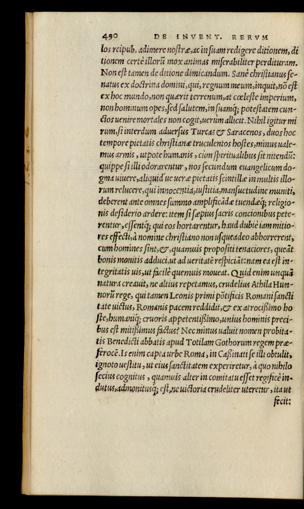 490 DE INVENT. RERVM
los reipub. adimere nostræ, ac in suam redigere ditionem, di
tionem certè illorū mox animas miserabiliter perdituram.
Non est tamen de ditione dimicandum. Sanè christianus se-
natus ex doctrina domini, qui, regnum meum, inquit, nō est
ex hoc mundo, non quærit terrenum, at cæleste imperium,
non hominum opes, sed salutem, in suamq; potestatem cun-
ctos uenire mortales non cogit, uerùm allicit. Nihil igitur mi
rum, si interdum aduersus Turcas & Saracenos, duos hoc
tempore pietatis christianæ truculentos hostes, minus uale-
mus armis, utpote humanis, cùm spiritualibus sit intendū:
quippe si illi odorarentur, nos secundum euangelicum do-
gma uiuere, aliquid ue ueræ pietatis scintillæ in multis illo-
rum relucere, qui innocentia, iustitia, mansuetudine muniti,
deberent ante omnes summo amplificādæ tuendæq; religio-
nis desiderio ardere: item si sæpius sacris concionibus pete-
rentur, essentq; qui eos hortarentur, haud dubiè iam mitio-
res effecti, à nomine christiano non usque adeo abhorrerent,
cum homines sint, &, quamuis propositi tenaciores, queāt
bonis monitis adduci, ut ad ueritatē respiciāt: nam ea est in-
tegritatis uis, ut facilè quemuis moueat. Quid enim unquā
natura creauit, ne altius repetamus, crudelius Athila Hun-
norū rege, qui tamen Leonis primi pōtificis Romani sancti
tate uictus, Romanis pacem reddidit, & ex atrocissimo ho-
ste, humaniq; cruoris appetentissimo, unius hominis preci-
bus est mitissimus factus? Nec minus ualuit nomen probita-
tis Benedicti abbatis apud Totilam Gothorum regem præ-
ferocē. Is enim capta urbe Roma, in Cassinati se illi obtulit,
ignoto uestitu, ut eius sanctitatem experiretur, à quo nihilo
secius cognitus, quamuis alter in comitatu esset regificè in-
dutus, admonitusq; est, ne uictoria crudeliter uteretur, ita ut
fecit: